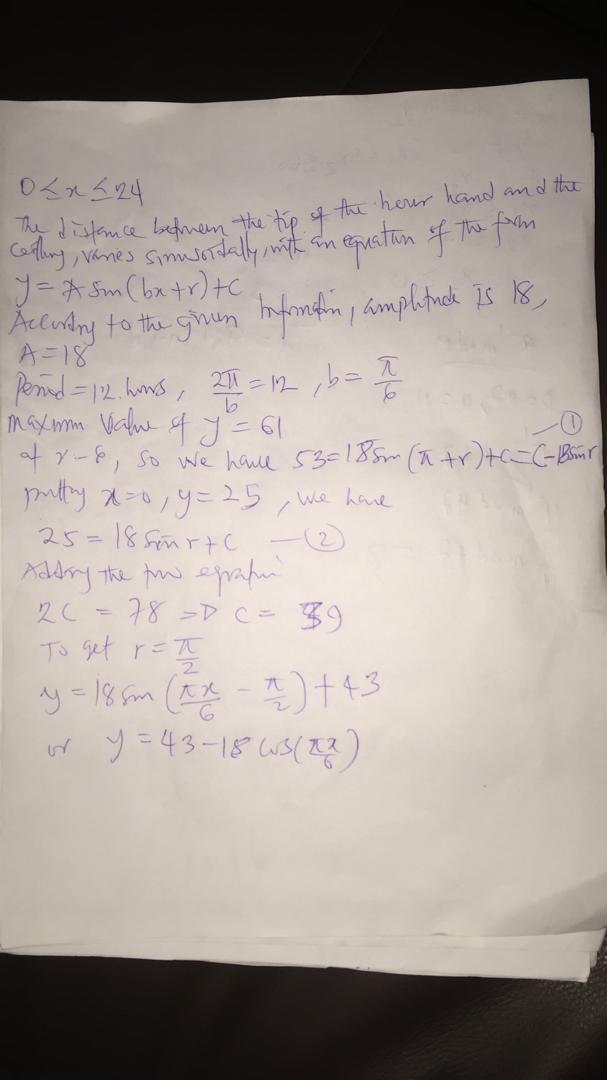 0 ≤ x ≤ 24
The distance between the tip of the hour hand and the
ceiling, varies sinusoidally, with an equation of the form
y = A sin(bx+r)+c
According to the given information, amplitude is 18,
A = 18
Period = 12 hours, 2π/b = 12, b = π/6
maximum value of y = 61
at x = 6, so we have 53 = 18 sin(π+r)+c = C-18sin r —①
putting x=0, y=25, we have
25 = 18 sin r + c —②
Adding the two
2C = 78 => C = 39
To get r = π/2
y = 18 sin(πx/6 - π/2) + 43
or y = 43 - 18 cos(πx/6)